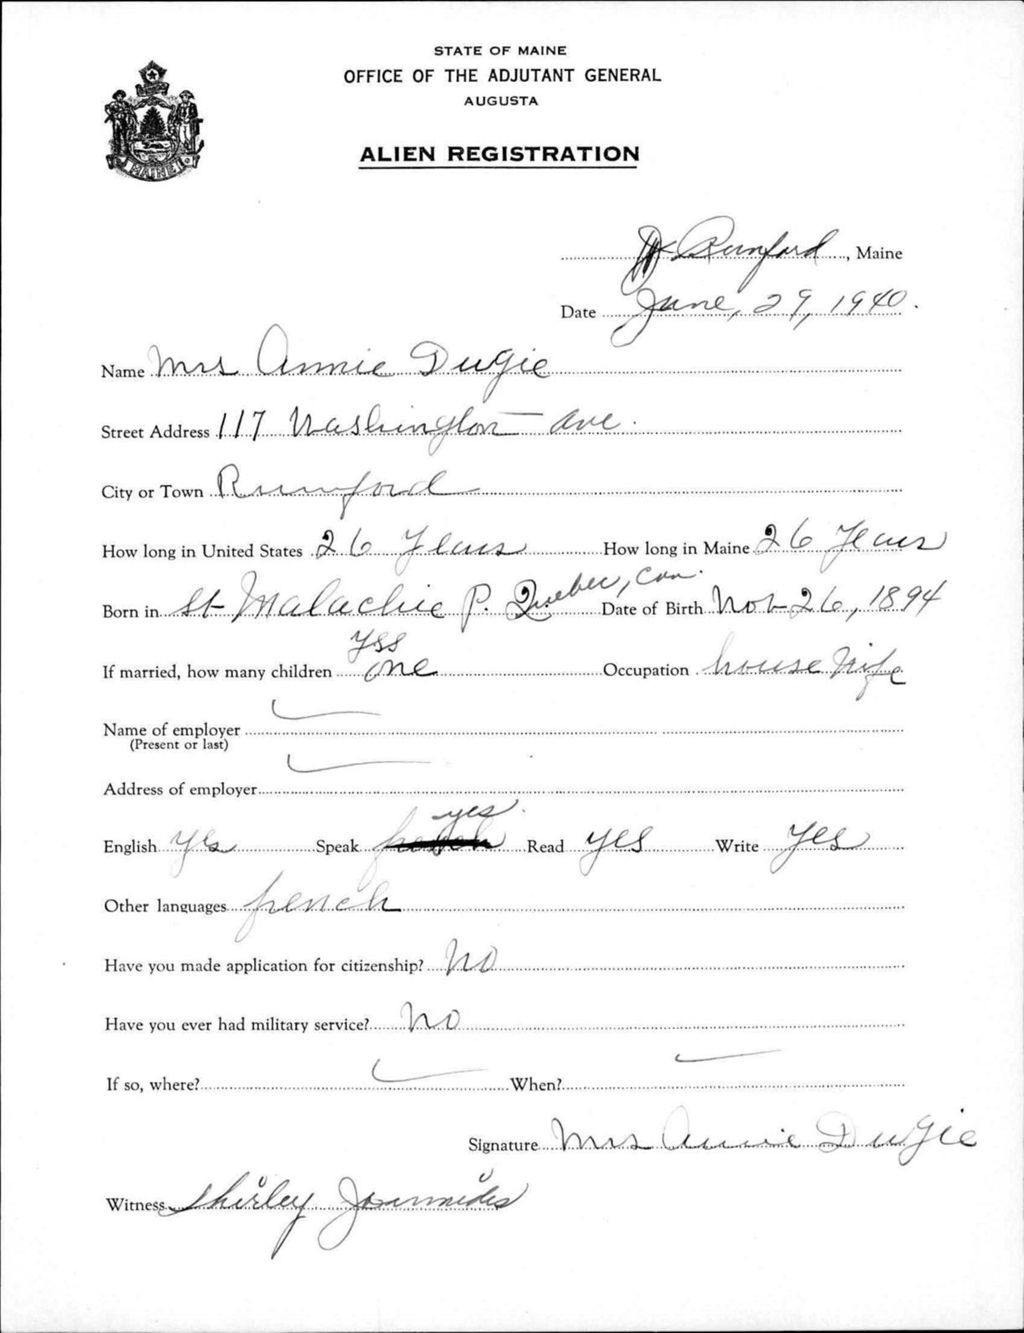 STATE OF MAINE
OFFICE OF THE ADJUTANT GENERAL
AUGUSTA
ALIEN REGISTRATION
MAINE
Rumford, Maine
Date June, 29, 1940.
Name Mrs Annie Dugie
Street Address 117 Washington Ave.
City or Town Rumford
How long in United States 26 Years How long in Maine 26 Years
Born in St Malachie P. Quebec, Can. Date of Birth Nov 26, 1894
yss
If married, how many children one Occupation house Wife
Name of employer
(Present or last)
Address of employer
yes.
English Yes Speak Read yes Write Yes
Other languages french
Have you made application for citizenship? No
Have you ever had military service? No
If so, where? When?
Signature Mrs Annie Dugie
Witness Shirley Joannides